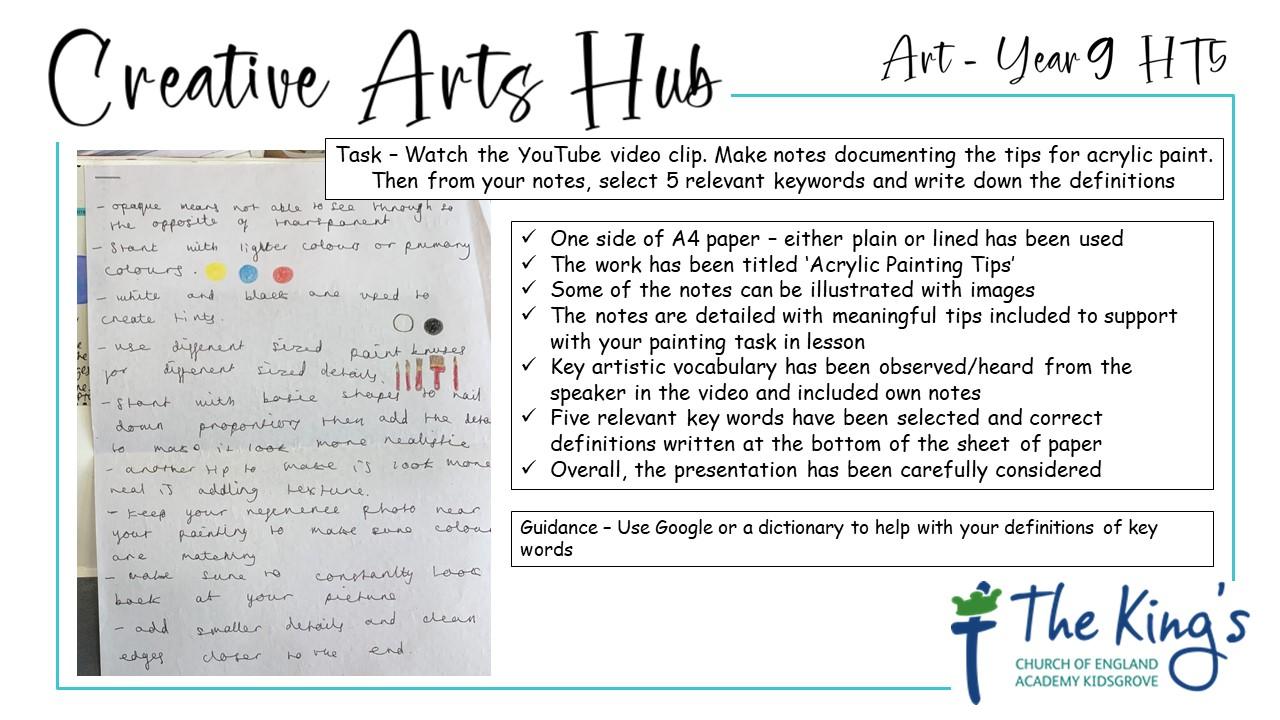 Creative Arts Hub
Art - Year 9 HT5
Task – Watch the YouTube video clip. Make notes documenting the tips for acrylic paint.
Then from your notes, select 5 relevant keywords and write down the definitions
- opaque means not able to see through so
the opposite of transparent
- Start with lighter colours or primary
colours.
- white and black are used to
create tints.
- use different sized paint
for different sized details.
- Start with basic shapes to nail
down proportions then add the
to make it look more realistic
- another tip to make it look more
real is adding texture.
- Keep your reference photo near
your painting to make sure
are matching
- make sure to constantly look
back at your picture
- add smaller details and clean
edges closer to the end.
✓ One side of A4 paper – either plain or lined has been used
✓ The work has been titled ‘Acrylic Painting Tips’
✓ Some of the notes can be illustrated with images
✓ The notes are detailed with meaningful tips included to support
with your painting task in lesson
✓ Key artistic vocabulary has been observed/heard from the
speaker in the video and included own notes
✓ Five relevant key words have been selected and correct
definitions written at the bottom of the sheet of paper
✓ Overall, the presentation has been carefully considered
Guidance – Use Google or a dictionary to help with your definitions of key
words
The King's
CHURCH OF ENGLAND
ACADEMY KIDSGROVE